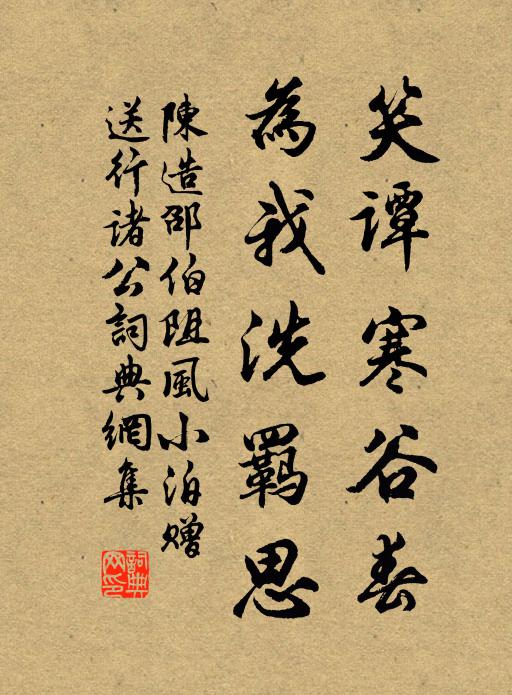 笑譚寒谷春
為我洗羈思
陳造邵伯阻風小泊贈
送行諸公詞典網集
詞典网印